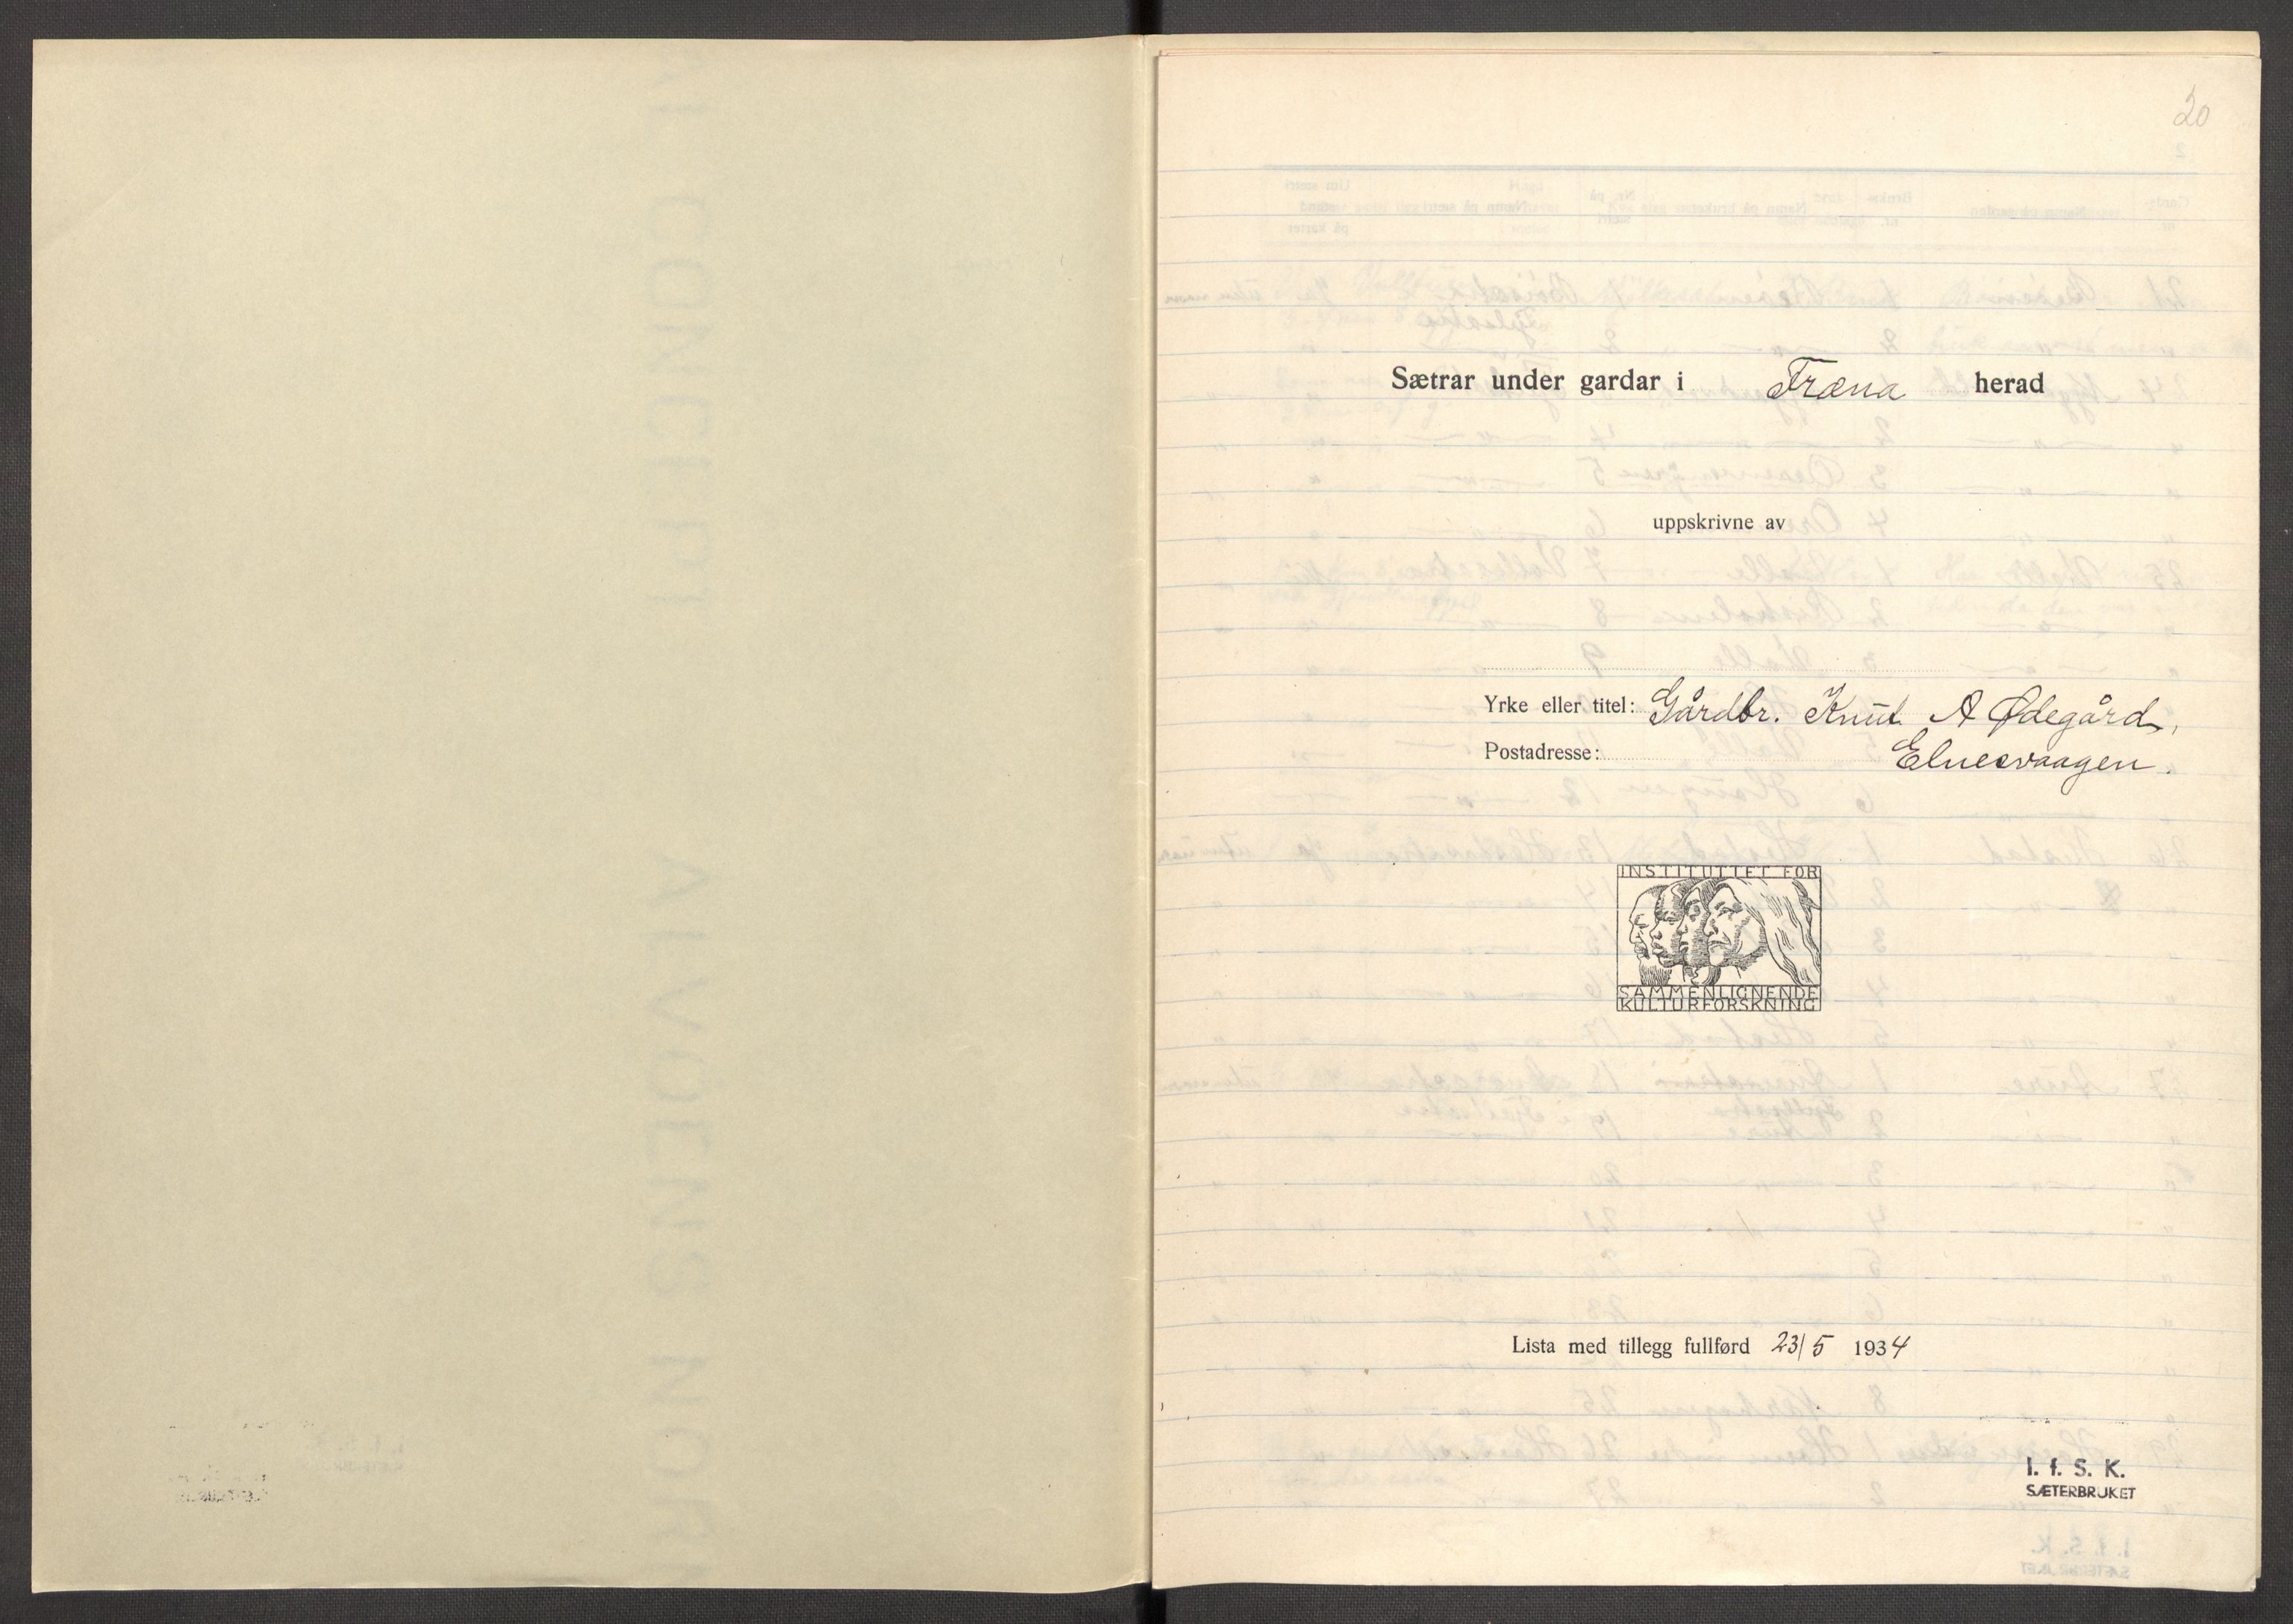 20
Sætrar under gardar i Fræna herad
uppskrivne av
Yrke eller titel: Gårdbr. Knut A Ødegård,
Postadresse: Elnesvaagen.
INSTITUTTET FOR
SAMMENLIGNENDE
KULTURFORSKNING
Lista med tillegg fullførd 23/5 1934
I. f. S. K.
SÆTERBRUKET